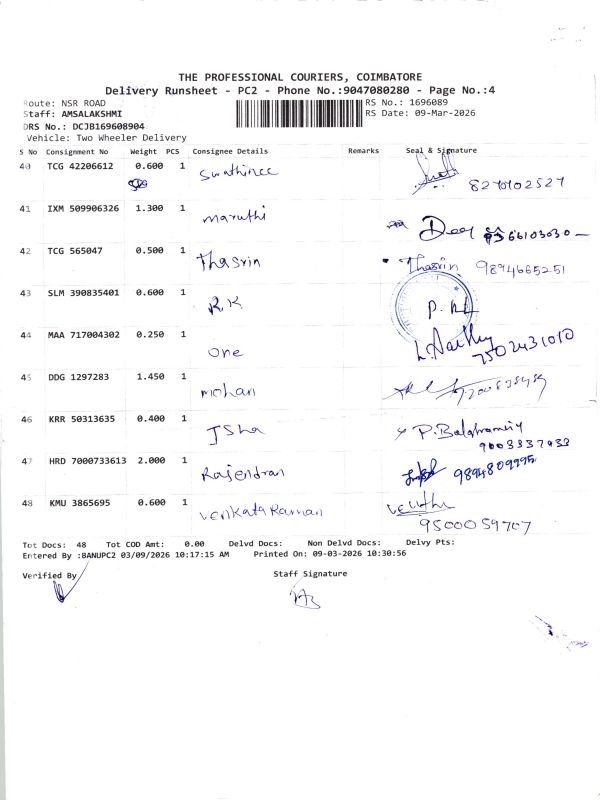 THE PROFESSIONAL COURIERS, COIMBATORE
Delivery Runsheet - PC2 - Phone No.:9047080280 - Page No.:4
Route: NSR ROAD
RS No.: 1696089
Staff: AMSALAKSHMI
RS Date: 09-Mar-2026
DRS No.: DCJB169608904
Vehicle: Two Wheeler Delivery
S No Consignment No Weight PCS Consignee Details Remarks Seal & Signature
40 TCG 42206612 0.600 1 Swathinee 8270102527
41 IXM 509906326 1.300 1 maruthi
42 TCG 565047 0.500 1 Thasrin Thasrin 9894665251
43 SLM 390835401 0.600 1 R.K
44 MAA 717004302 0.250 1 one 7502431010
45 DDG 1297283 1.450 1 mohan
46 KRR 50313635 0.400 1
47 HRD 7000733613 2.000 1 Rajendran 9894809995
48 KMU 3865695 0.600 1 Venkata Raman 9500059707
Tot Docs: 48 Tot COD Amt: 0.00 Delvd Docs: Non Delvd Docs: Delvy Pts:
Entered By :BANUPC2 03/09/2026 10:17:15 AM Printed On: 09-03-2026 10:30:56
Verified By Staff Signature